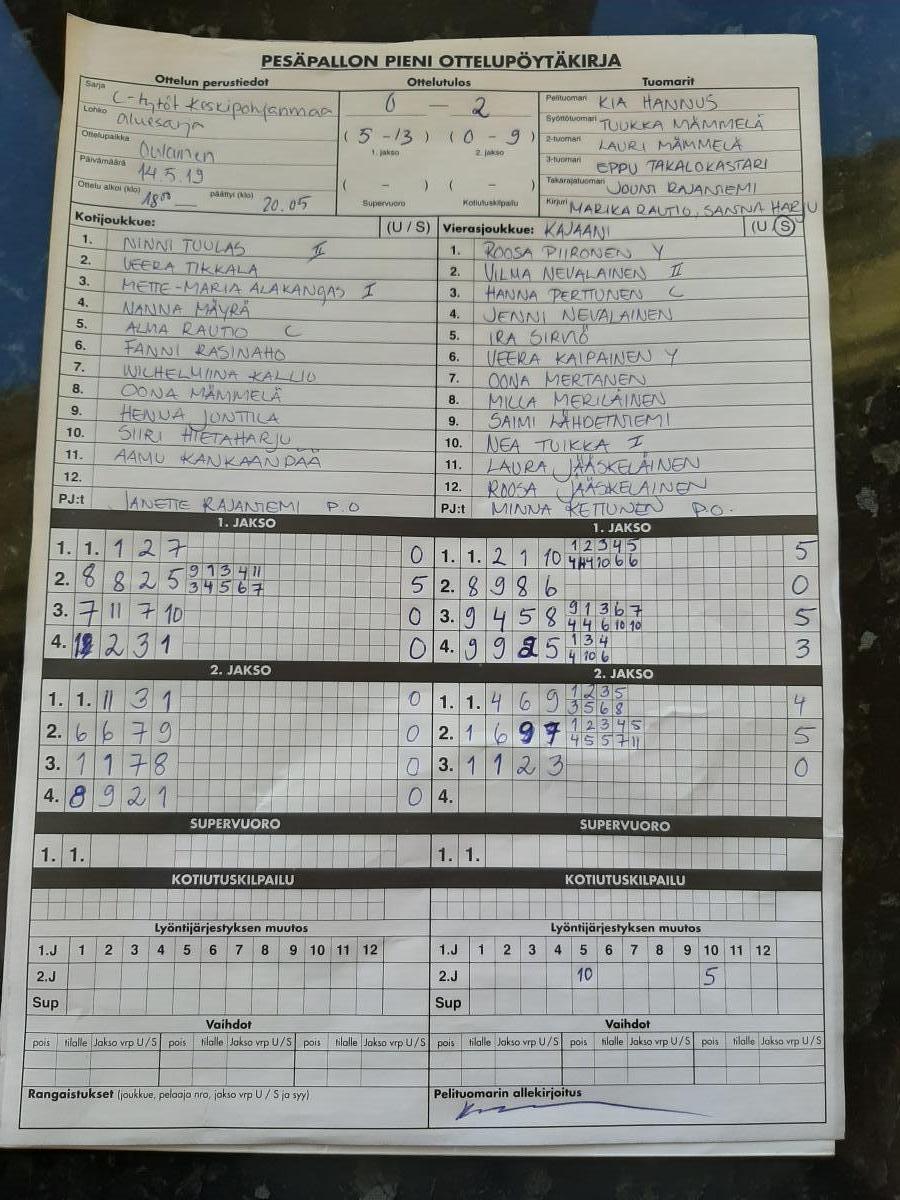 PESÄPALLON PIENI OTTELUPÖYTÄKIRJA
Ottelun perustiedot
Sarja C-tytöt Keskipohjanmaa
Lohko aluesarja
Ottelupaikka Oulainen
Päivämäärä 14.5.19
Ottelu alkoi (klo) 18⁰⁰ päättyi (klo) 20.05
Ottelutulos
0 — 2
(5 - 13) (0 - 9)
1. jakso 2. jakso
( - ) ( - )
Supervuoro Kotiutuskilpailu
Tuomarit
Pelituomari KIA HANNUS
Syöttötuomari TUUKKA MÄMMELÄ
2-tuomari LAURI MÄMMELÄ
3-tuomari EPPU TAKALOKASTARI
Takarajatuomari JOUNI RAJANIEMI
Kirjuri MARIKA RAUTIO, SANNA HARJU
Kotijoukkue: (U / S)
1. NINNI TUULAS II
2. VEERA TIKKALA
3. METTE-MARIA ALAKANGAS I
4. NANNA MÄYRÄ
5. ALMA RAUTIO C
6. FANNI RASINAHO
7. WILHELMIINA KALLIO
8. OONA MÄMMELÄ
9. HENNA JUNTTILA
10. SIIRI HIETAHARJU
11. AAMU KANKAANPÄÄ
12.
PJ:t JANETTE RAJANIEMI P.O
Vierasjoukkue: KAJAANI (U / S)
1. ROOSA PIIRONEN Y
2. VILMA NEVALAINEN II
3. HANNA PERTTUNEN C
4. JENNI NEVALAINEN
5. IRA SIRVIÖ
6. VEERA KAIPAINEN Y
7. OONA MERTANEN
8. MILLA MERILÄINEN
9. SAIMI LÄHDETNIEMI
10. NEA TUIKKA I
11. LAURA JÄÄSKELÄINEN
12. ROOSA JÄÄSKELÄINEN
PJ:t MINNA KETTUNEN P.O.
1. JAKSO
1. 1. 1 2 7 0
2. 8 8 2 5 9 1 3 4 11 5
3 4 5 6 7
3. 7 11 7 10 0
4. 2 3 1 0
1. JAKSO
1. 1. 2 1 10 1 2 3 4 5 5
4 4 10 6 6
2. 8 9 8 6 0
3. 9 4 5 8 9 1 3 6 7 5
4 4 6 10 10
4. 9 9 2 5 1 3 4 3
4 10 6
2. JAKSO
1. 1. 11 3 1 0
2. 6 6 7 9 0
3. 1 1 7 8 0
4. 8 9 2 1 0
2. JAKSO
1. 1. 4 6 9 1 2 3 5 4
3 5 6 8
2. 1 6 9 7 1 2 3 4 5 5
4 5 5 7 11
3. 1 1 2 3 0
4.
SUPERVUORO
1. 1.
SUPERVUORO
1. 1.
KOTIUTUSKILPAILU
KOTIUTUSKILPAILU
Lyöntijärjestyksen muutos
1.J 1 2 3 4 5 6 7 8 9 10 11 12
2.J
Sup
Lyöntijärjestyksen muutos
1.J 1 2 3 4 5 6 7 8 9 10 11 12
2.J 10 5
Sup
Vaihdot
pois tilalle Jakso vrp U / S pois tilalle Jakso vrp U / S pois tilalle Jakso vrp U / S
Vaihdot
pois tilalle Jakso vrp U / S pois tilalle Jakso vrp U / S pois tilalle Jakso vrp U / S
Rangaistukset (joukkue, pelaaja nro, jakso vrp U / S ja syy)
Pelituomarin allekirjoitus